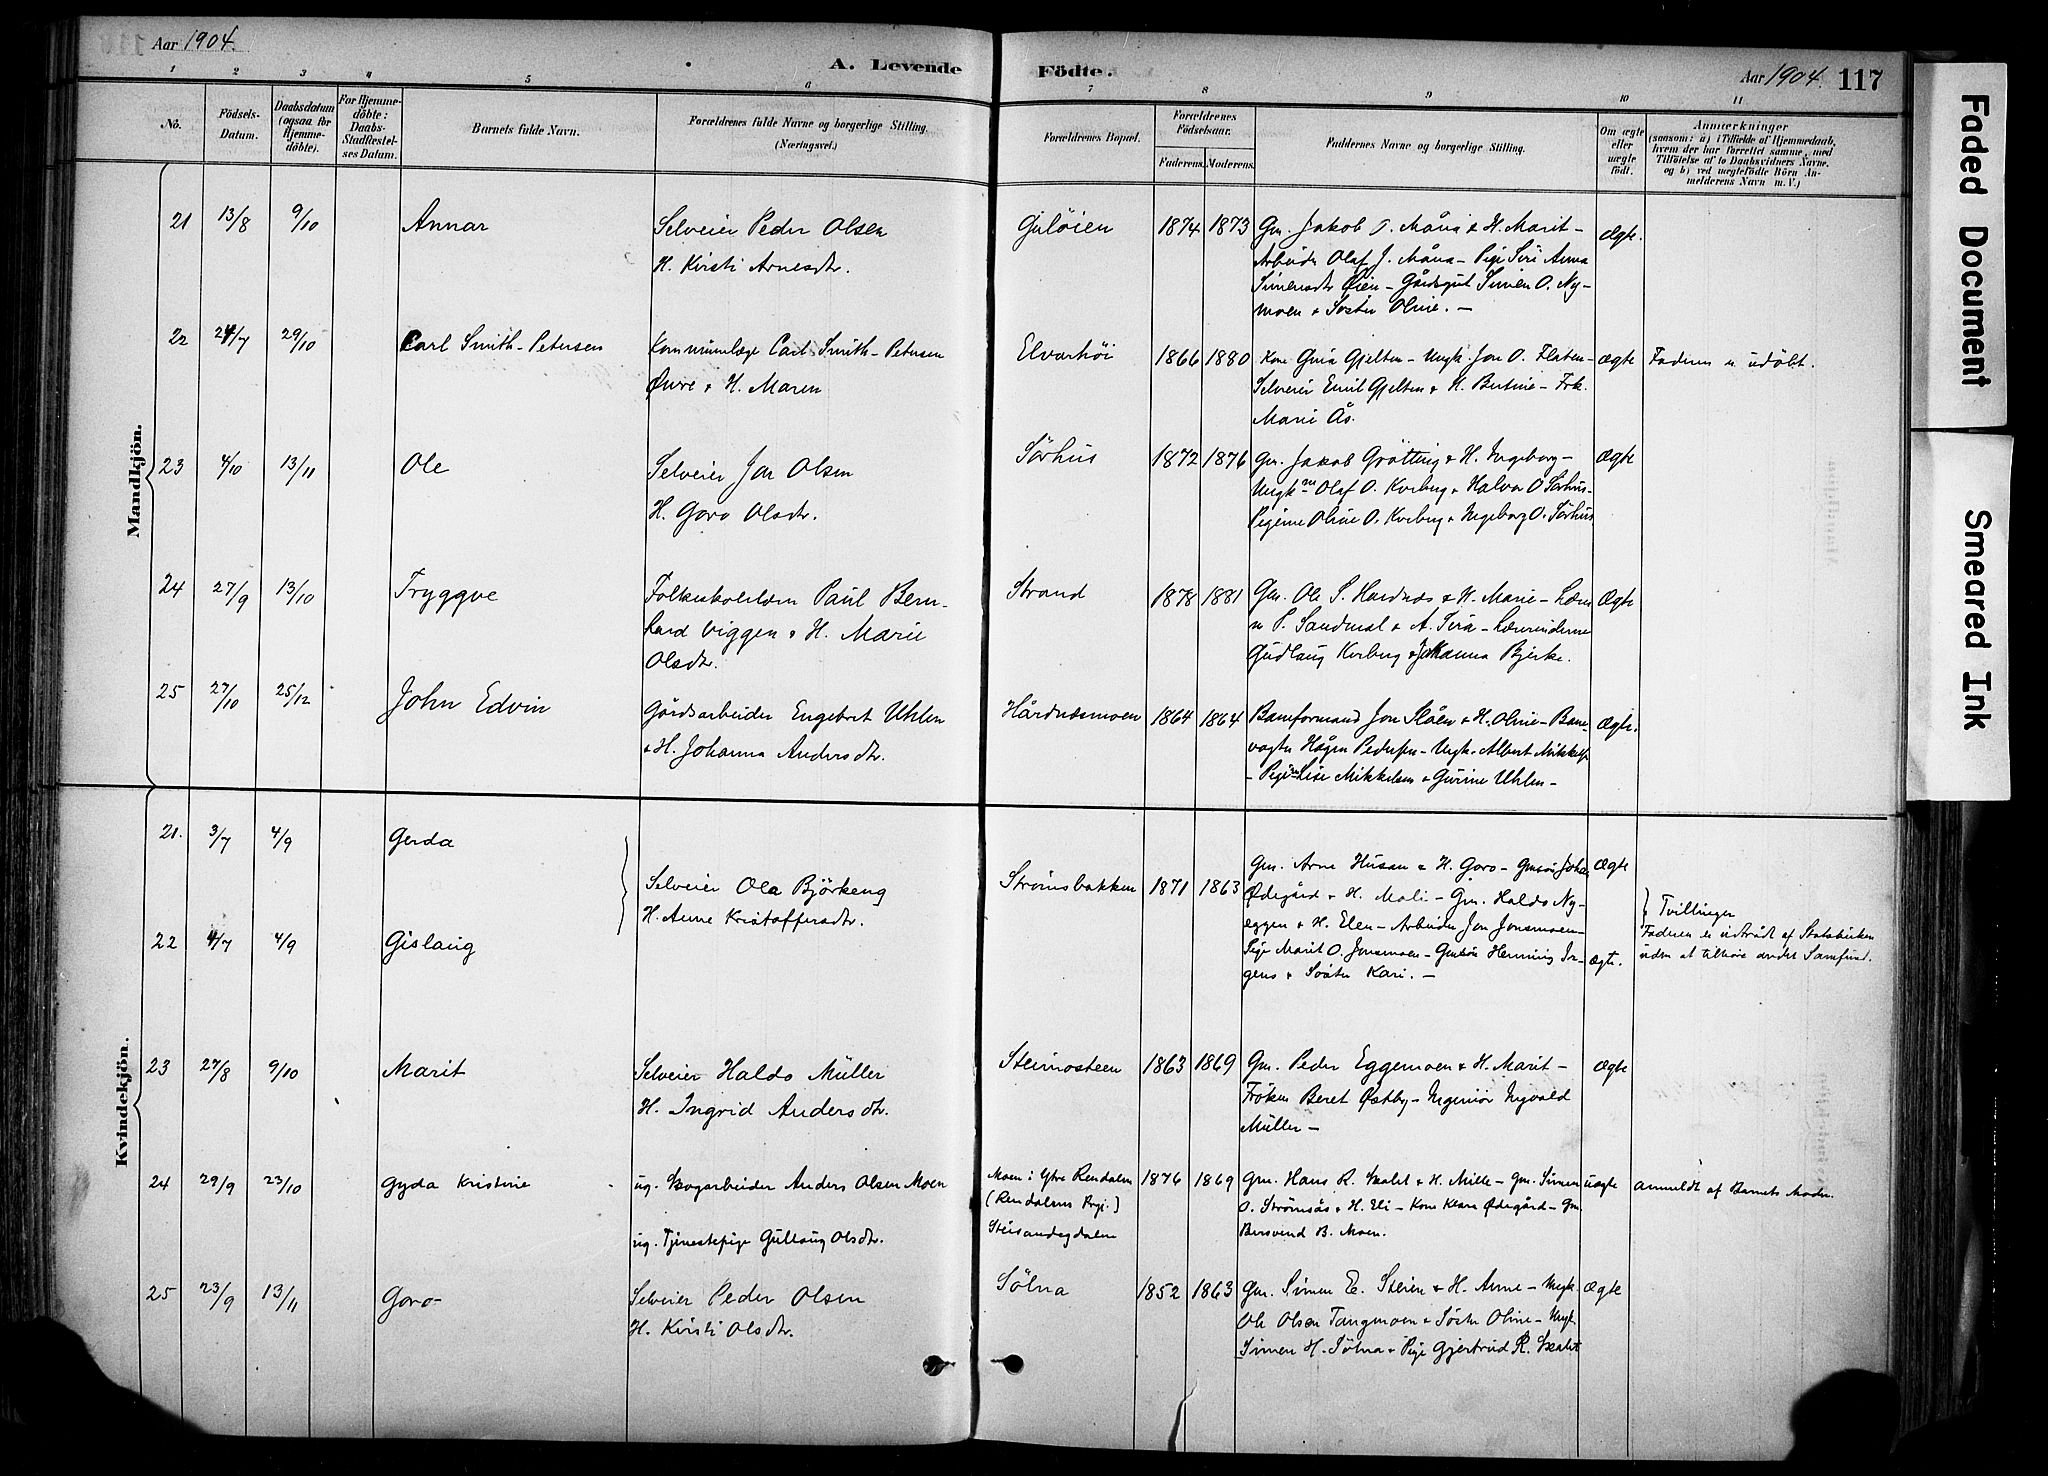 Aar 1904.
A. Levende Födte.
Aar 1904. 117
1 2 3 4 5 6 7 8 9 10 11
No.
Födsels-Datum.
Daabsdatum (ogsaa for Hjemmedöbte).
For Hjemmedöbte: Daabs-Stadfæstelses Datum.
Barnets fulde Navn.
Forældrenes fulde Navne og borgerlige Stilling. (Næringsvei.)
Forældrenes Bopæl.
Forældrenes Födselsaar.
Faderens. Moderens.
Faddernes Navne og borgerlige Stilling.
Om ægte eller uægte födt.
Anmærkninger
(saasom: a) i Tilfælde af Hjemmedaab,
hvem der har forrettet samme, med
Tilföielse af to Daabsvidners Navne,
og b) ved uægtefödte Börn Anmelderens Navn m. V.)
Mandkjön.
21 13/8 9/10 Annar
Selveier Peder Olsen
H. Kirsti Arnesdtr.
Guløien 1874 1873
Gm. Jakob O. Måna & H. Marit -
Arbeider Olaf J. Måna - Pige Siri Anna
Simensdtr Øien - Gårdsgut Simen O. Ny-
moen & Søster Oline. -
Ægte.
22 24/7 29/10 Carl Smith-Petersen
Kommunelæge Carl Smith-Petersen
Øvre & H. Maren
Elvarhøi 1866 1880
Kone Guia Gjelten - Ungk. Jon O. Flaten -
Selveier Emil Gjelten & H. Bertine - Frk.
Marie Ås.
Ægte
Faderen er udöbt.
23 4/10 13/11 Ole
Selveier Jon Olsen
H. Goro Olsdtr.
Sørhus 1872 1876
Gm. Jakob Grötting & H. Ingeborg -
Ungk. Olaf O. Korberg & Halvor O Sörhus -
Pigerne Oline O. Korberg & Ingeborg O. Sörhus
Ægte
24 27/9 13/10 Tryggve
Folkeskolelærer Paul Bern-
hard Viggen & H. Marie
Olsdtr.
Strand 1878 1881
Gm. Ole S. Hardnæs & H. Marie - Lærer
P. Sandmæl & A. - Lærerinderne
Gudlaug Korberg & Johanna Bjerke.
Ægte
25 27/10 25/12 John Edvin
Gårdsarbeider Engebret Uhlen
& H. Johanna Andersdtr.
Hårdnæsmoen 1864 1864
Baneformand Jon Slåen & H. Oline - Bane-
vogter Hågen Pedersen - Ungk. Albert
- Pigerne Lise Mikkelsen & Gurine Uhlen -
Ægte.
Kvindekjön.
21. 3/7 4/9 Gerda
Selveier Ola Björkeng
H. Anne Kristoffersdtr.
Strömsbakken 1871 1863
Gm. Arne Husan & H. Goro - Gmsön Johan
Ødegård & H. Mali - Gm. Haldo Ny-
eggen & H. Elen - Arbeider Jon Jonsmoen -
Pige Marit O. Jonsmoen - Henning
& Søster Kari. -
Ægte
} Tvillinger
Faderen er udtrådt af Statskirken
uden at tilhöre andet Samfund.
22 4/7 4/9 Gislaug
ægte.
23 27/8 9/10 Marit
Selveier Haldo Müller
H. Ingrid Andersdtr.
Steimosteen 1863 1869
Gm. Peder Eggemoen & H. Marit -
Fröken Beret Østby - Ingeniør Ingvald
Müller -
ægte
24 29/9 23/10 Gyda Kristine
ug. Skogarbeider Anders Olsen Moen
ug. Tjenestepige Gullaug Olsdtr.
Moen i Ytre Rendalen
(Rendalens Prgj.)
1876 1869
Gm. Hans R. Skalet & H. Mille - Gm. Simen
O. Strömsås & H. Eli - Kone Klara Ødegård - Gm.
Bersvend B. Moen.
uægte
anmeldt af Barnets Moder.
25 23/9 13/11 Goro
Selveier Peder Olsen
H. Kirsti Olsdtr.
Sölna 1852 1863
Gm. Simen E. Steien & H. Anne - Ungk.
Ole Olsen Tangmoen & Söster Oline - Ungk.
Simen H. Sölna & Pige Gjertrud R. Skalet
Ægte
Faded Document
Smeared Ink